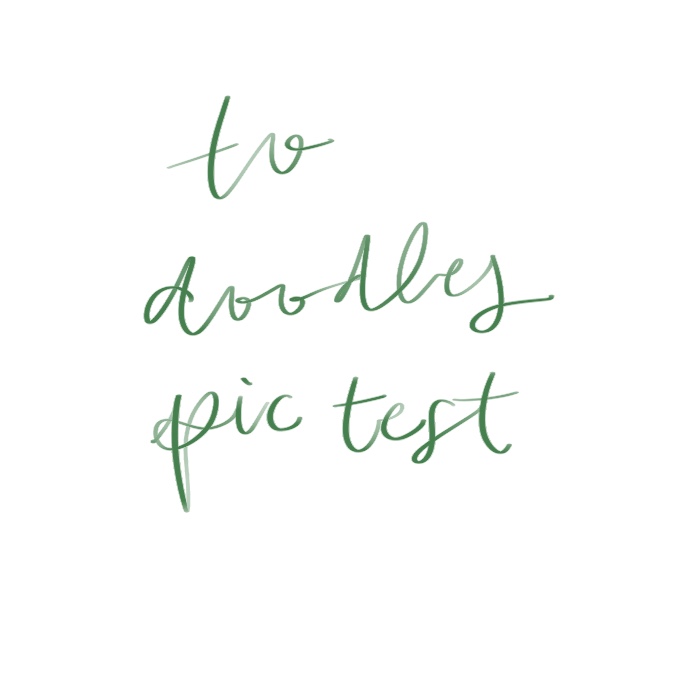 to
doodles
pic test